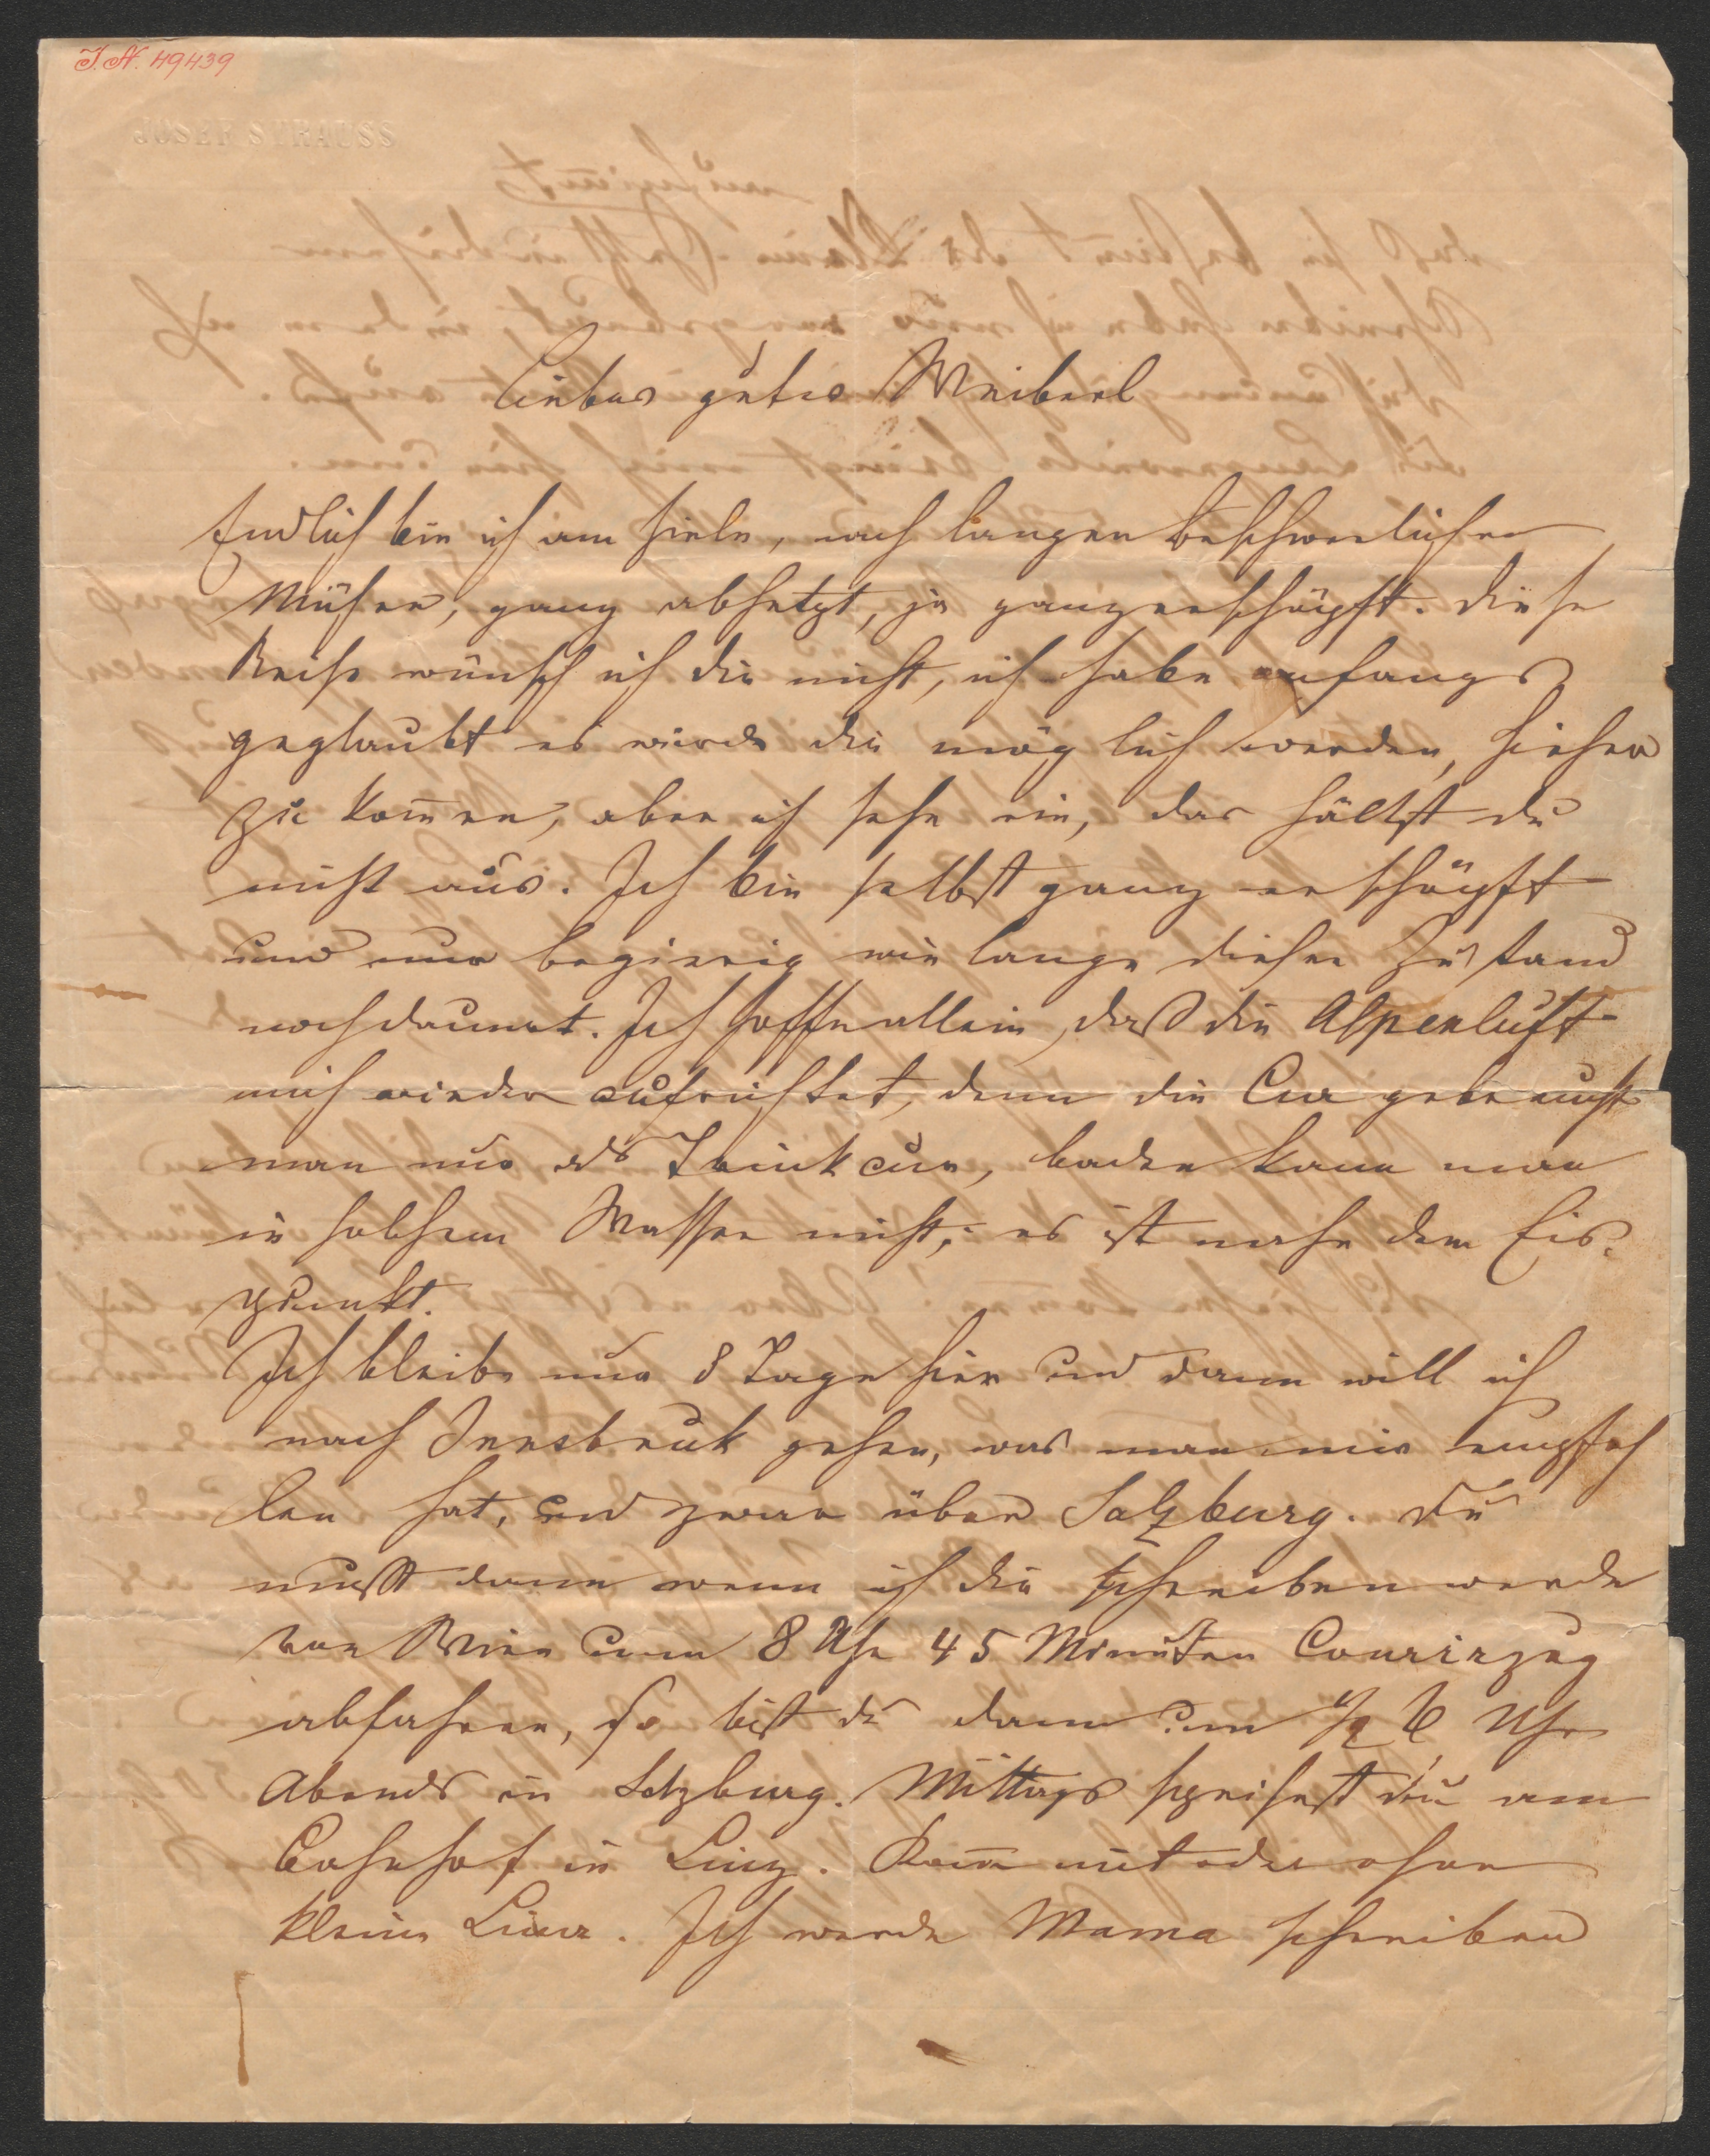 I.N. 49439
JOSEF STRAUSS
Liebes gutes Weiberl
Endlich bin ich am Ziele, nach langen beschwerlichen
Mühen, ganz abhetzt, ja ganz erschöpft. Diese
Reise wünsch ich dir nicht, ich habe anfangs
geglaubt es würde dir möglich werden, hieher
zu kom̄en, aber ich sehe ein, das hältst du
nicht aus. Ich bin selbst ganz erschöpft
und nur begierig wie lange dieser Zustand
noch dauert. Ich hoffe allein, daß die Alpenluft
mich wieder aufrichtet, denn die Cur gebraucht
man nur als Trinkcur, baden kann man
in solchem Wasser nicht, es ist nahe dem Eis-
punkt.
Ich bleibe nur 8 Tage hier und dann will ich
nach Innsbruk gehen, was man mir empfoh
len hat, und zwar über Salzburg. Du
mußt dann wenn ich dir schreiben werde
von Wien um 8 Uhr 45 Minuten Courirzug
abfahren, so bist du dann um ½ 6 Uhr
Abends in Salzburg. Mittags speisest du am
Bahnhof in Linz. Kom̄ mit oder ohne
kleine Lina. Ich werde Mama schreiben